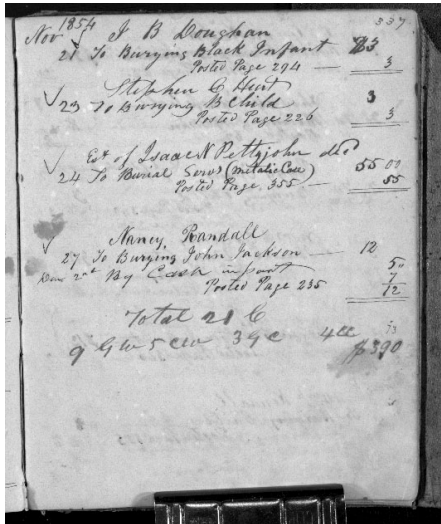 337
Nov 1854 J B Doughan
21 To Burying Black Infant $3
Posted Page 294 — 3
Stephen C Hunt
23 To Burying B Child 3
Posted Page 226 3
Est of Isaac N Pettyjohn decd
24 To Burial Servs (Metalic Case) 55 00
Posted Page 355 — 55
Nancy Randall
27 To Burying John Jackson — 12
2nd By Cash in part 5
Posted Page 235 7
12
Total 21 C
9 G W 5 C W 3 G C 4
$390